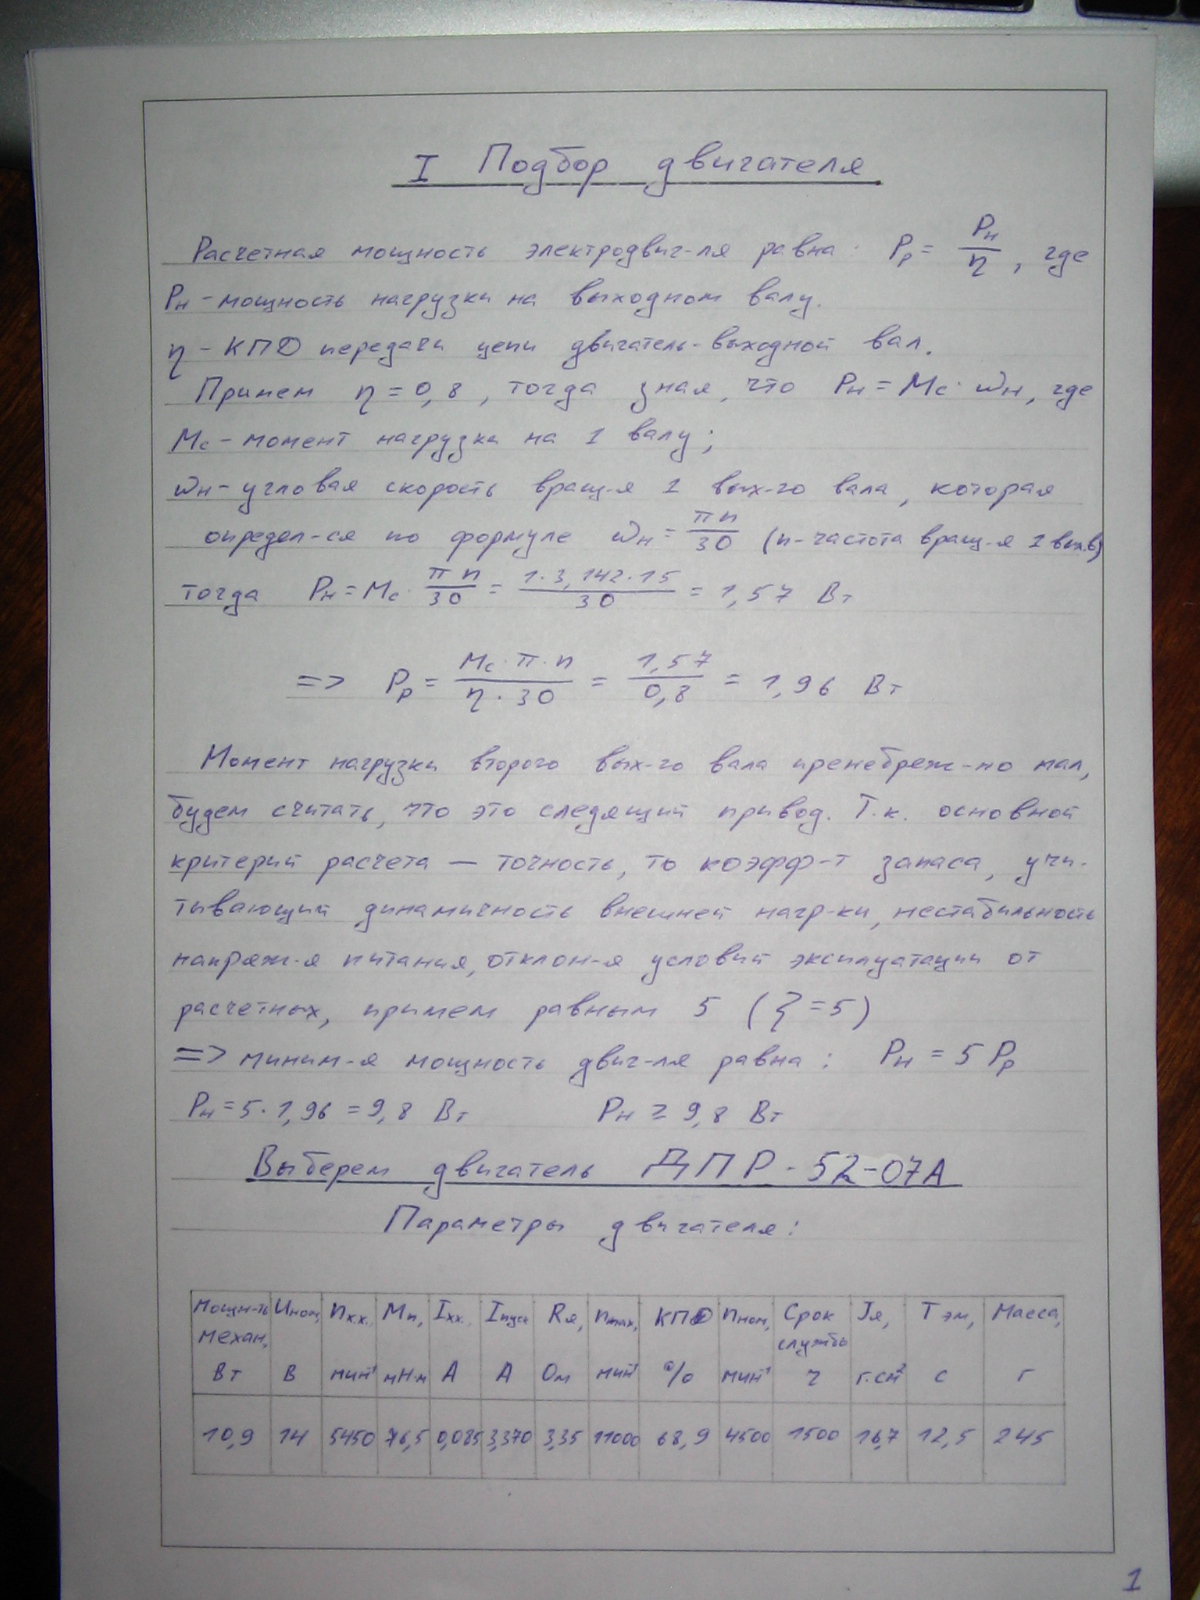 I Подбор двигателя
Расчетная мощность электродвиг-ля равна: Pр = Pн/η, где
Pн - мощность нагрузки на выходном валу.
η - КПД передачи цепи двигатель-выходной вал.
Примем η = 0,8, тогда зная, что Pн = Mc · ωн, где
Mc - момент нагрузки на 1 валу;
ωн - угловая скорость вращ-я 1 вых-го вала, которая
определ-ся по формуле ωн = πn/30 (n - частота вращ-я 1 вых.в)
тогда Pн = Mc · πn/30 = 1·3,142·15/30 = 1,57 Вт
=> Pр = Mc·π·n/η·30 = 1,57/0,8 = 1,96 Вт
Момент нагрузки второго вых-го вала пренебреж-но мал,
будем считать, что это следящий привод. Т.к. основной
критерий расчета — точность, то коэфф-т запаса, учи-
тывающий динамичность внешней нагр-ки, нестабильность
напряж-я питания, отклон-я условий эксплуатации от
расчетных, примем равным 5 (ξ = 5)
=> миним-я мощность двиг-ля равна: Pн = 5 Pр
Pн = 5·1,96 = 9,8 Вт Pн ≥ 9,8 Вт
Выберем двигатель ДПР-52-07А
Параметры двигателя:
Мощн-ть механ, Вт Uном, В nхх. мин⁻¹ Mп, мН·м Iхх. А Iпуск А Rя, Ом nmax, мин⁻¹ КПД % nном, мин⁻¹ Срок службы ч Jя, г·см² T эм, с Масса, г
10,9 14 5450 76,5 0,085 3,370 3,35 11000 68,9 4500 1500 16,7 12,5 245
1